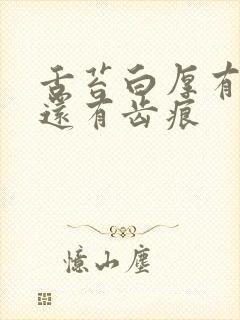 舌苔白厚有
还有齿痕
憶山塵